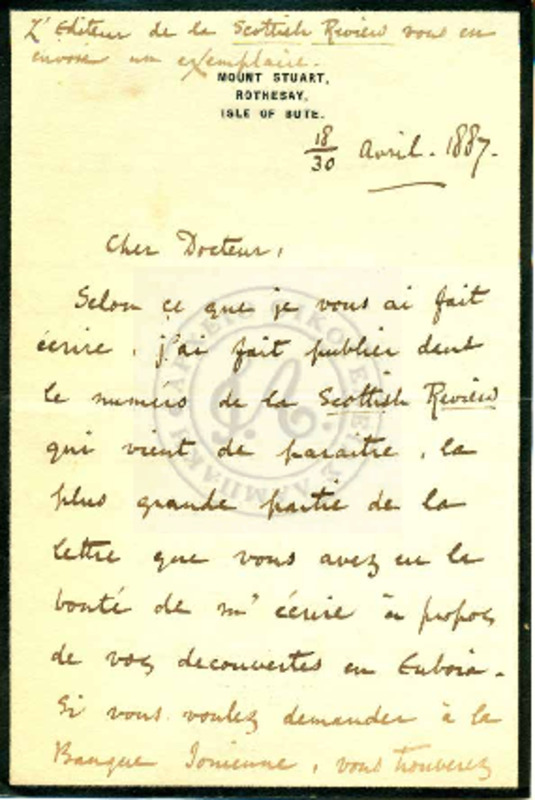 L'Editeur de la Scottish Review vous en
envoie un exemplaire.
MOUNT STUART,
ROTHESAY,
ISLE OF BUTE.
18/30 Avril. 1887.
Cher Docteur,
Selon ce que je vous ai fait
écrire, j'ai fait publier dans
le numéro de la Scottish Review
qui vient de paraitre, la
plus grande partie de la
lettre que vous avez eu la
bonté de m'écrire à propos
de vos decouvertes en Euboia.
Si vous voulez demander à la
Banque Ionienne, vous trouverez